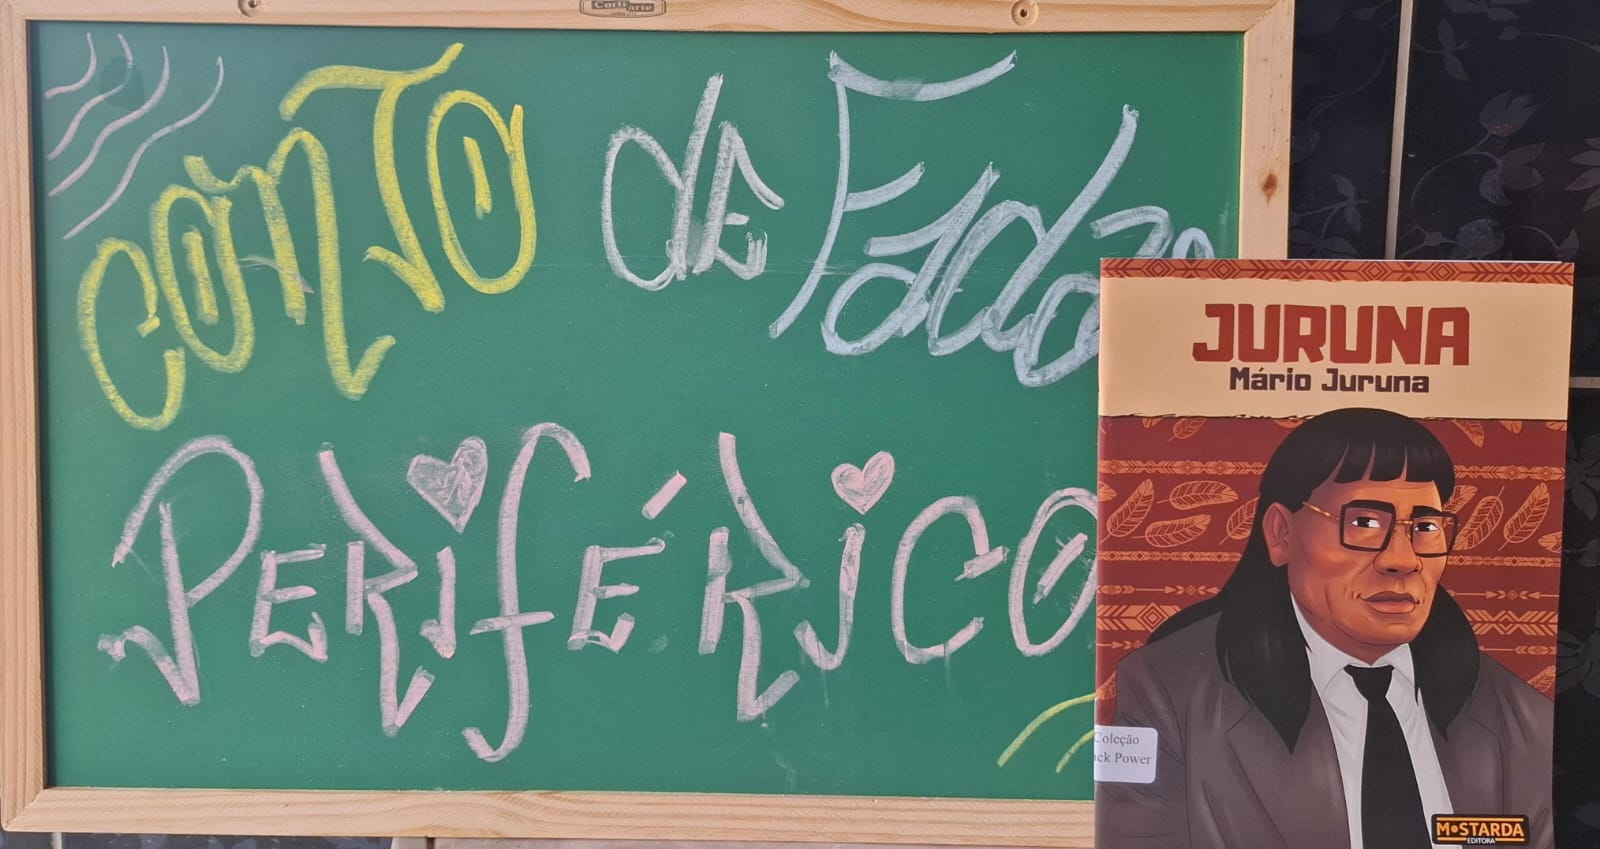 CortiArte
CONTO de Fadas
PERIFÉRICO
JURUNA
Mário Juruna
Coleção
ck Power
MOSTARDA
EDITORA